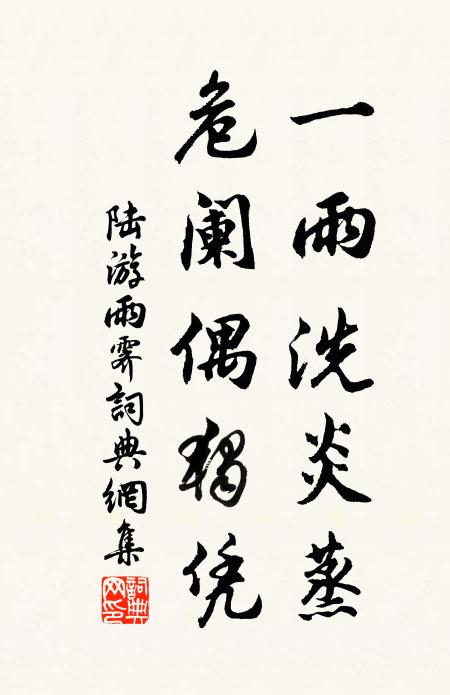 一雨洗炎蒸
危阑偶獨凭
陆游雨霁詞典網集
詞典网印